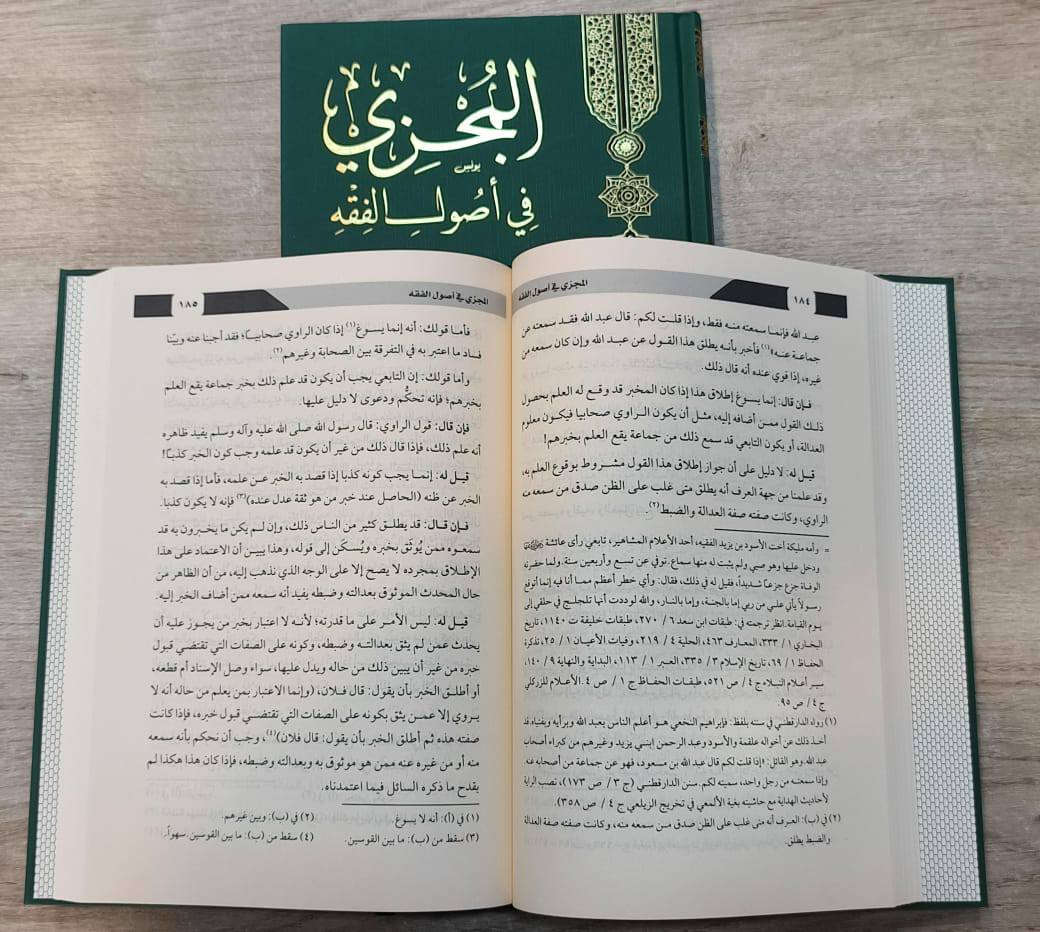 المُجْزِي
يونس
فِي أُصُولِ الفِقْهِ
المجزي في أصول الفقه
١٨٤
عبد الله فإنما سمعته منه فقط، وإذا قلت لكم: قال عبد الله فقد سمعته عن
جماعة عنه(١) فأخبر بأنه يطلق هذا القول عن عبد الله وإن كان سمعه من
غيره، إذا قوي عنده أنه قال ذلك.
فإن قال: إنما يسوغ إطلاق هذا إذا كان المخبر قد وقع له العلم بحصول
ذلك القول ممن أضافه إليه، مثل أن يكون الراوي صحابيا فيكون معلوم
العدالة، أو يكون التابعي قد سمع ذلك من جماعة يقع العلم بخبرهم!
قيل له: لا دليل على أن جواز إطلاق هذا القول مشروط بوقوع العلم به،
وقد علمنا من جهة العرف أنه يطلق متى غلب على الظن صدق من سمعه منه
الراوي، وكانت صفته صفة العدالة والضبط(٢).
= وأمه مليكة أخت الأسود بن يزيد الفقيه، أحد الأعلام المشاهير، تابعي رأى عائشة
ودخل عليها وهو صبي ولم يثبت له منها سماع. توفي عن تسع وأربعين سنة. ولما حضرته
الوفاة جزع جزعا شديداً، فقيل له في ذلك، فقال: وأي خطر أعظم مما أنا فيه إنما أتوقع
رسولاً يأتي علي من ربي إما بالجنة، وإما بالنار، والله لوددت أنها تلجلج في حلقي إلى
يوم القيامة. انظر ترجمته في: طبقات ابن سعد ٦/ ٢٧٠، طبقات خليفة ت ١١٤٠، تاريخ
البخاري ١/ ٣٣٣، المعارف ٤٦٣، الحلية ٤/ ٢١٩، وفيات الأعيان ١/ ٢٥، تذكرة
الحفاظ ١/ ٦٩، تاريخ الإسلام ٣/ ٣٣٥، العبر ١/ ١١٣، البداية والنهاية ٩/ ١٤٠،
سير أعلام النبلاء ج ٤/ ص ٥٢١، طبقات الحفاظ ج ١/ ص ٤. الأعلام للزركلي
ج ٤/ ص ٩٥.
(١) رواه الدارقطني في سننه بلفظ: فإبراهيم النخعي هو أعلم الناس بعبد الله وبرأيه وبفتياه قد
أخذ ذلك عن أخواله علقمة والأسود وعبد الرحمن ابني يزيد وغيرهم من كبراء أصحاب
عبد الله، وهو القائل: «إذا قلت لكم قال عبد الله بن مسعود، فهو عن جماعة من أصحابه عنه.
وإذا سمعته من رجل واحد، سميته لكم. سنن الدارقطني (ج ٣/ ص ١٧٣)، نصب الراية
لأحاديث الهداية مع حاشيته بغية الألمعي في تخريج الزيلعي ج ٤/ ص ٣٥٨).
(٢) في (ب): العرف أنه متى غلب على الظن صدق من سمعه منه، وكانت صفته صفة العدالة
والضبط يطلق.
المجزي في أصول الفقه
١٨٥
فأما قولك: أنه إنما يسوغ(١) إذا كان الراوي صحابيا؛ فقد أجبنا عنه وبيّنا
فساد ما اعتبر به في التفرقة بين الصحابة وغيرهم(٢).
وأما قولك: إن التابعي يجب أن يكون قد علم ذلك بخبر جماعة يقع العلم
بخبرهم؛ فإنه تحكُّم ودعوى لا دليل عليها.
فإن قال: قول الراوي: قال رسول الله صلى الله عليه وآله وسلم يفيد ظاهره
أنه علم ذلك، فإذا قال ذلك من غير أن يكون قد علمه وجب كون الخبر كذبًا!
قيل له: إنما يجب كونه كذبا إذا قصد به الخبر عن علمه، فأما إذا قصد به
الخبر عن ظنه (الحاصل عند خبر من هو ثقة عدل عنده)(٣) فإنه لا يكون كذبا.
فإن قال: قد يطلق كثير من الناس ذلك، وإن لم يكن ما يخبرون به قد
سمعوه ممن يُوثَق بخبره ويُسكَن إلى قوله، وهذا يبين أن الاعتماد على هذا
الإطلاق بمجرده لا يصح إلا على الوجه الذي نذهب إليه، من أن الظاهر من
حال المحدث الموثوق بعدالته وضبطه يفيد أنه سمعه ممن أضاف الخبر إليه.
قيل له: ليس الأمر على ما قدرته؛ لأنه لا اعتبار بخبر من يجوز عليه أن
يحدث عمن لم يثق بعدالته وضبطه، وكونه على الصفات التي تقتضي قبول
خبره من غير أن يبين ذلك من حاله ويدل عليها، سواء وصل الإسناد أم قطعه،
أو أطلق الخبر بأن يقول: قال فلان، (وإنما الاعتبار بمن يعلم من حاله أنه لا
يروي إلا عمن يثق بكونه على الصفات التي تقتضي قبول خبره، فإذا كانت
صفته هذه ثم أطلق الخبر بأن يقول: قال فلان)(٤)، وجب أن نحكم بأنه سمعه
منه أو من غيره عنه ممن هو موثوق به وبعدالته وضبطه، فإذا كان هذا هكذا لم
يقدح ما ذكره السائل فيما اعتمدناه.
(١) في (أ): أنه لا يسوغ. (٢) في (ب): وبين غيرهم.
(٣) سقط من (ب): ما بين القوسين. (٤) سقط من (ب): ما بين القوسين. سهواً.